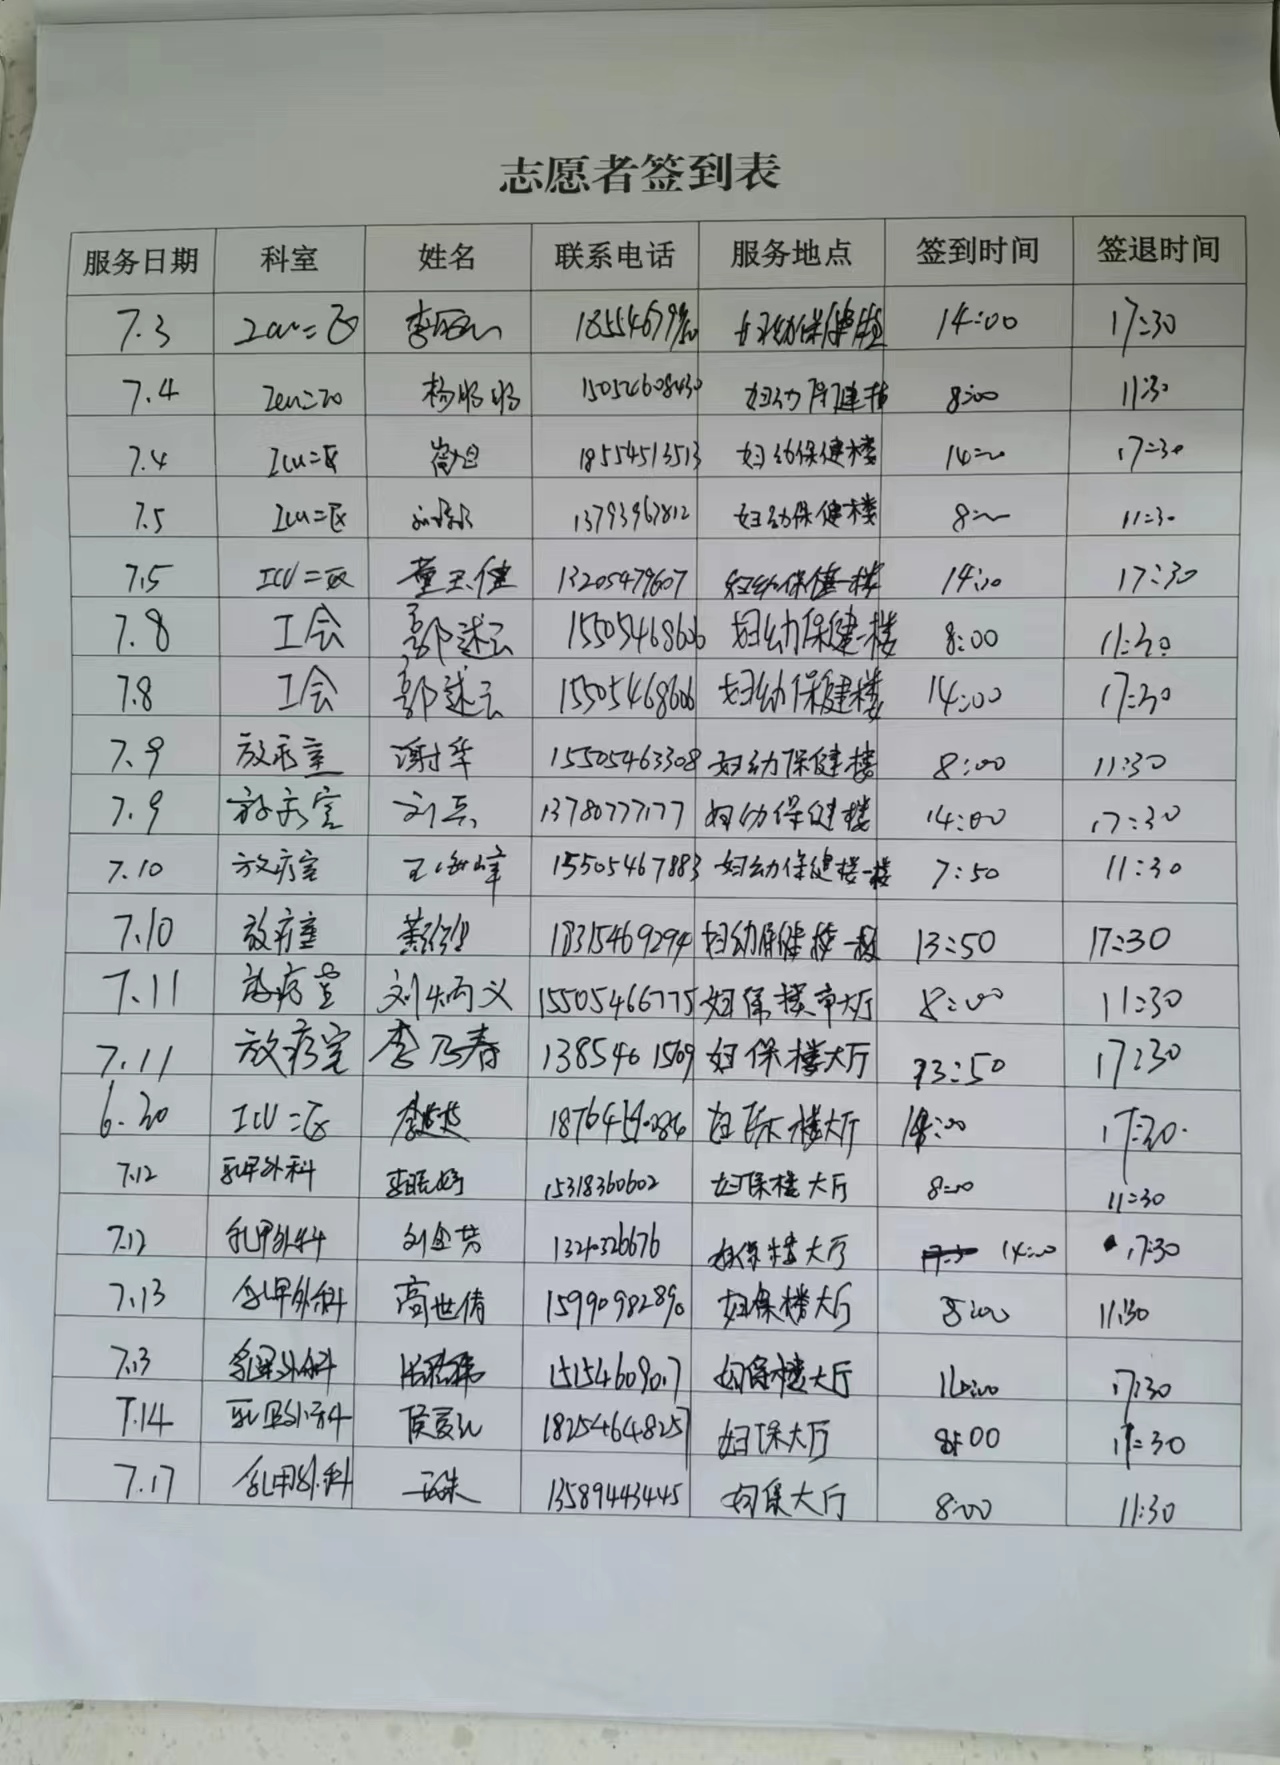 志愿者签到表
服务日期 科室 姓名 联系电话 服务地点 签到时间 签退时间
7.3 ICU二区 妇幼保健楼 14:00 17:30
7.4 ICU二区 杨明明 150524608430 妇幼保健楼 8:00 11:30
7.4 ICU二区 18554513513 妇幼保健楼 14:00 17:30
7.5 ICU二区 13793967812 妇幼保健楼 8:00 11:30
7.5 ICU二区 董玉健 13205479607 妇幼保健一楼 14:00 17:30
7.8 工会 郭述云 15505468606 妇幼保健一楼 8:00 11:30
7.8 工会 郭述云 15505468606 妇幼保健楼 14:00 17:30
7.9 放疗室 谢华 15505463308 妇幼保健楼 8:00 11:30
7.9 放疗室 刘兵 13780777177 妇幼保健楼 14:00 17:30
7.10 放疗室 王海峰 15505467883 妇幼保健楼一楼 7:50 11:30
7.10 放疗室 18315469294 妇幼保健楼一楼 13:50 17:30
7.11 放疗室 刘炳义 15505466775 妇保楼大厅 8:00 11:30
7.11 放疗室 李乃春 1385461569 妇保楼大厅 13:50 17:30
6.30 ICU二区 妇保楼大厅 14:00 17:30
7.12 乳甲外科 15318360602 妇保楼大厅 8:00 11:30
7.12 乳甲外科 刘金芳 妇保楼大厅 14:00 17:30
7.13 乳甲外科 高世倩 15990982890 妇保楼大厅 8:00 11:30
7.13 乳甲外科 妇保楼大厅 14:00 17:30
7.14 乳甲外科 18254648257 妇保大厅 8:00 11:30
7.17 乳甲外科 13589443445 妇保大厅 8:00 11:30